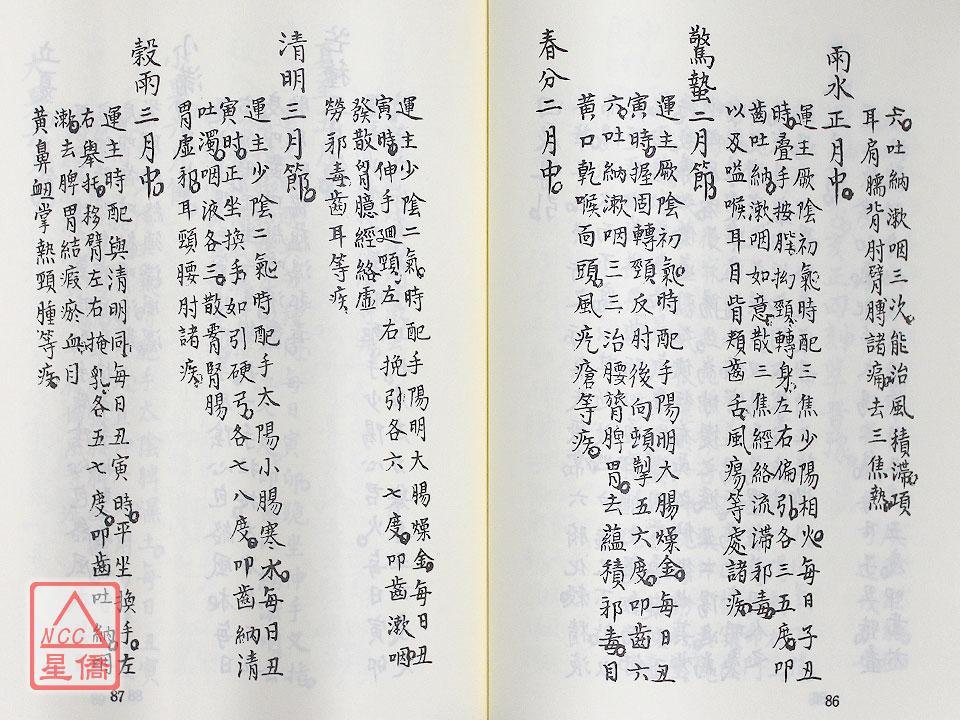 六。吐納漱咽三次。能治風積滯。項
耳肩臑背肘臂膊諸痛。去三焦熱。
雨水正月中。
運主厥陰初氣。時配三焦少陽相火。每日子丑
時。疊手按髀。拗頸轉身。左右偏引。各三五度。叩
齒吐納。漱咽如意。散三焦經絡流滯邪毒。
以及嗌喉耳目眥頰齒舌風瘍等處諸病。
驚蟄二月節。
運主厥陰初氣。時配手陽明大腸燥金。每日丑
寅時。握固轉頸反肘後向頓掣五六度。叩齒六
六。吐納漱咽三三。治腰膂脾胃。去蘊積邪毒。目
黃口乾喉面頭風疙瘡等疾。
春分二月中。
運主少陰二氣。時配手陽明大腸燥金。每日丑
寅時。伸手迴頸。左右挽引。各六七度。叩齒漱咽。
發散胷臆經絡虛
勞邪毒齒耳等疾
清明三月節。
運主少陰二氣。時配手太陽小腸寒水。每日丑
寅時。正坐換手。如引硬弓。各七八度。叩齒納清
吐濁。咽液各三。散胷腎腸
胃虛邪。耳頸腰肘諸疾。
穀雨三月中。
運主時配與清明同。每日丑寅時。平坐換手。左
右舉托。移臂左右掩乳。各五七度。叩齒吐納。咽
漱。去脾胃結瘕瘀血。目
黃鼻衄掌熱頸腫等疾。
NCC
星僑
87
86